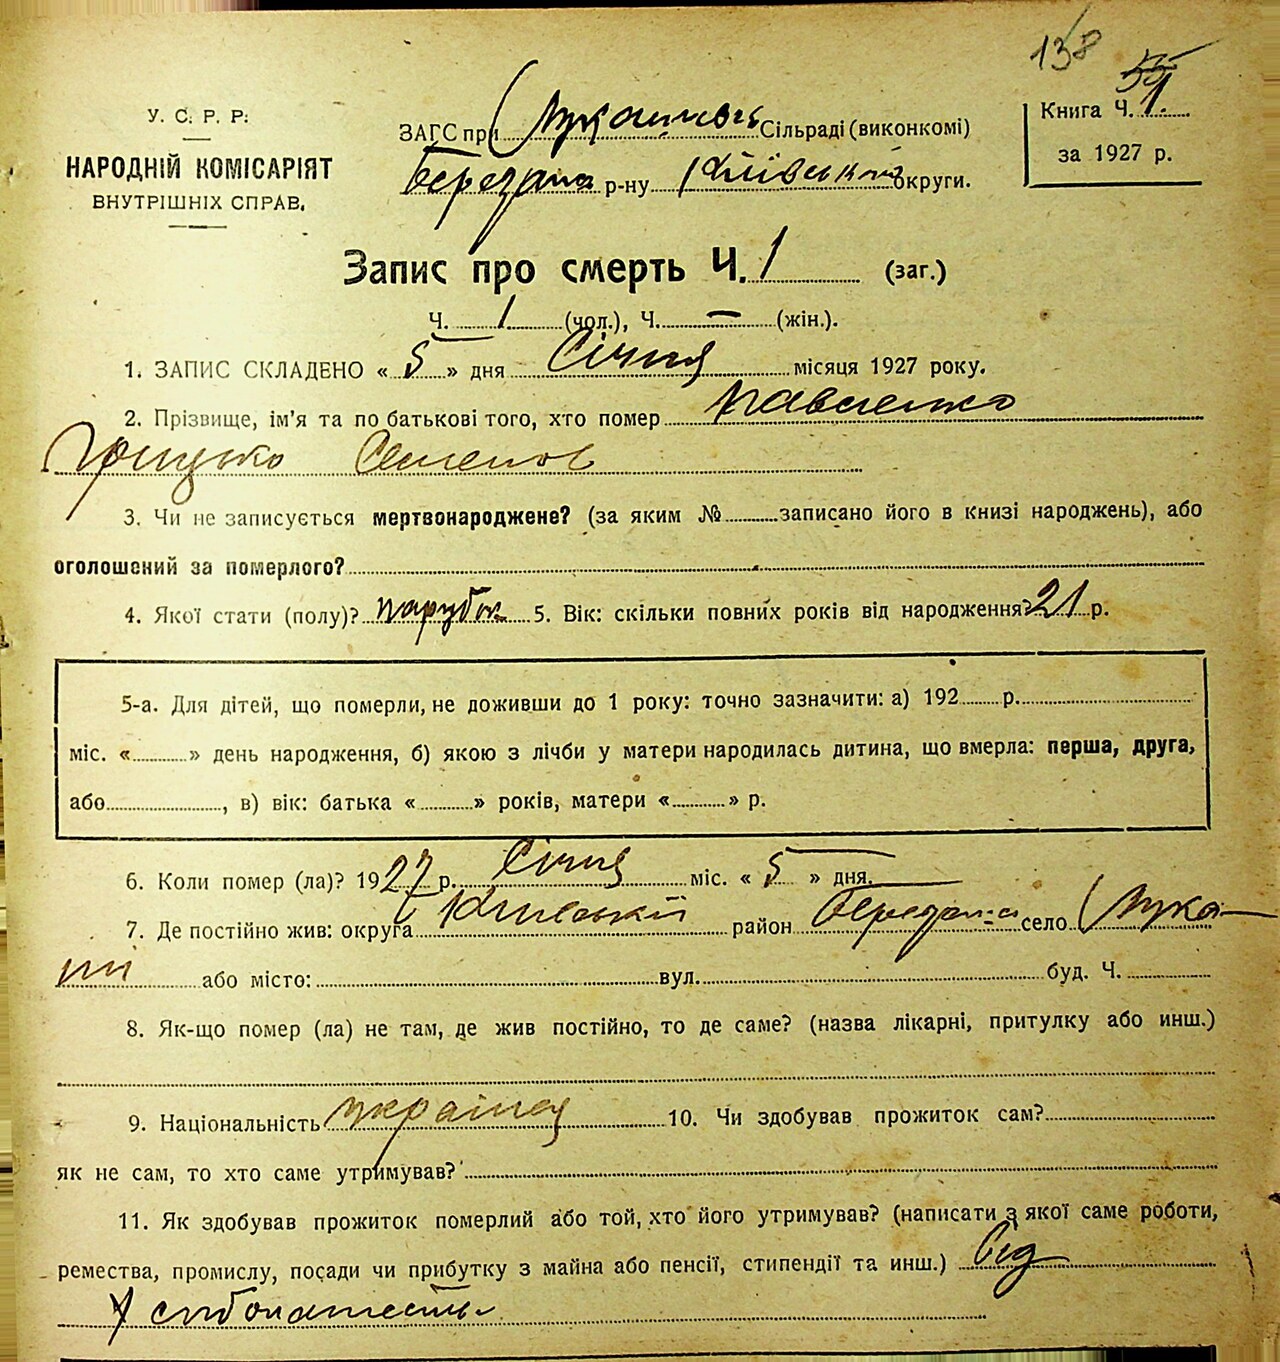 138
55
У. С. Р. Р.
НАРОДНІЙ КОМІСАРІЯТ
ВНУТРІШНІХ СПРАВ.
ЗАГС при Лукашівськ Сільраді (виконкомі)
Березан р-ну Київської округи.
Книга Ч. 1
за 1927 р.
Запис про смерть Ч. 1 (заг.)
Ч. 1 (чол.), Ч. — (жін.).
1. ЗАПИС СКЛАДЕНО « 5 » дня Січня місяця 1927 року.
2. Прізвище, ім'я та по батькові того, хто помер Павленко
Грицько Семенов
3. Чи не записується мертвонароджене? (за яким № записано його в книзі народжень), або
оголошений за померлого?
4. Якої стати (полу)? парубок 5. Вік: скільки повних років від народження? 21 р.
5-а. Для дітей, що померли, не доживши до 1 року: точно зазначити: а) 192 р.
міс. « » день народження, б) якою з лічби у матери народилась дитина, що вмерла: перша, друга,
або , в) вік: батька « » років, матери « » р.
6. Коли помер (ла)? 1927 р. Січня міс. « 5 » дня.
7. Де постійно жив: округа Київській район Березан село Лука-
ші або місто: вул. буд. Ч.
8. Як-що помер (ла) не там, де жив постійно, то де саме? (назва лікарні, притулку або инш.)
9. Національність 10. Чи здобував прожиток сам?
як не сам, то хто саме утримував?
11. Як здобував прожиток померлий або той, хто його утримував? (написати з якої саме роботи,
ремества, промислу, посади чи прибутку з майна або пенсії, стипендії та инш.) від